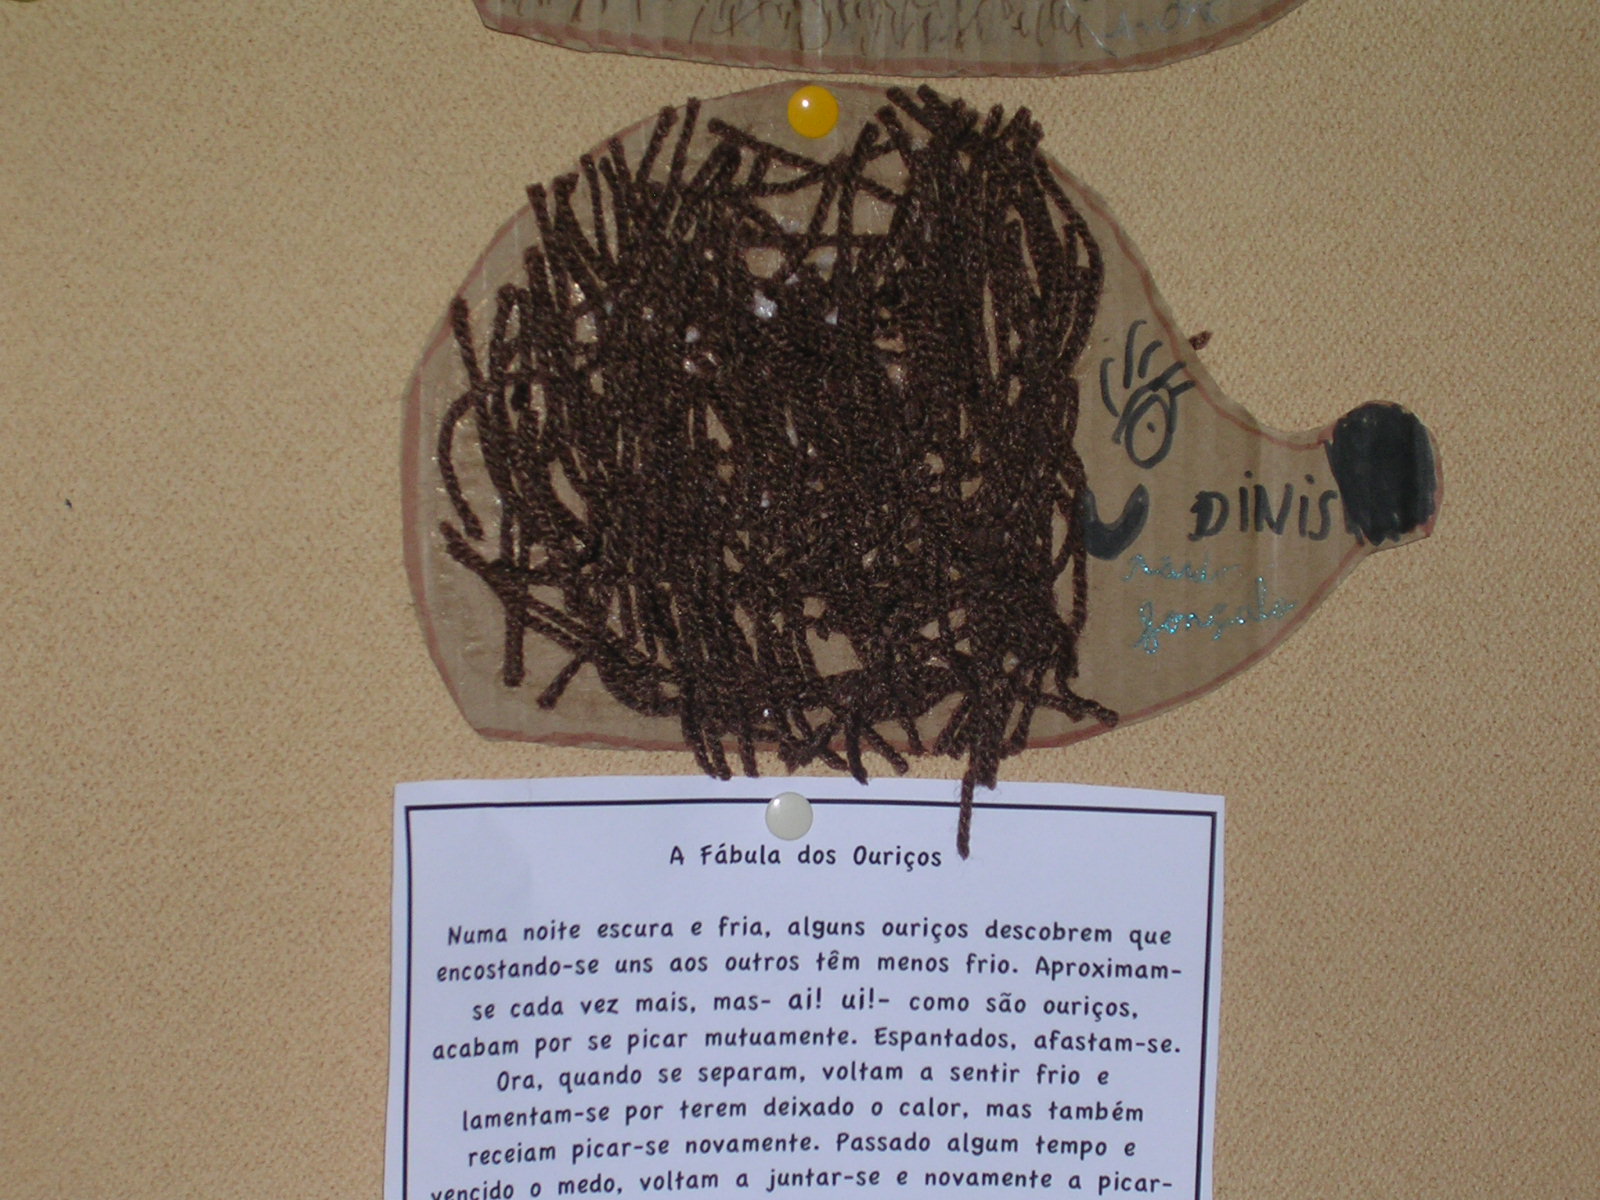 DiNis
gonçalo
A Fábula dos Ouriços
Numa noite escura e fria, alguns ouriços descobrem que
encostando-se uns aos outros têm menos frio. Aproximam-
se cada vez mais, mas- ai! ui!- como são ouriços,
acabam por se picar mutuamente. Espantados, afastam-se.
Ora, quando se separam, voltam a sentir frio e
lamentam-se por terem deixado o calor, mas também
receiam picar-se novamente. Passado algum tempo e
vencido o medo, voltam a juntar-se e novamente a picar-